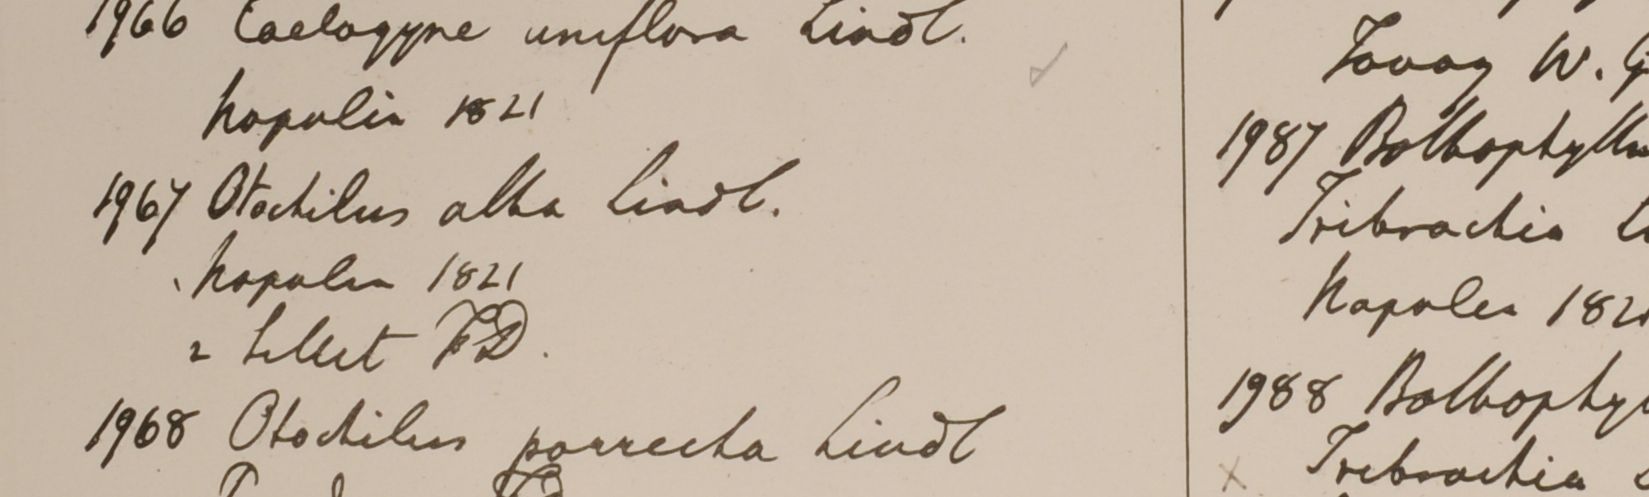 1966 Coelogyne uniflora Lindl.
Napalia 1821
1967 Otochilus alba Lindl.
Napalia 1821
2 Sillet FD.
1968 Otochilus porrecta Lindl
FD
Tavoy W. G
1987 Bolbophyllu
Tribrachia
Napalia 182
1988 Bolbophyl
Tribrachia